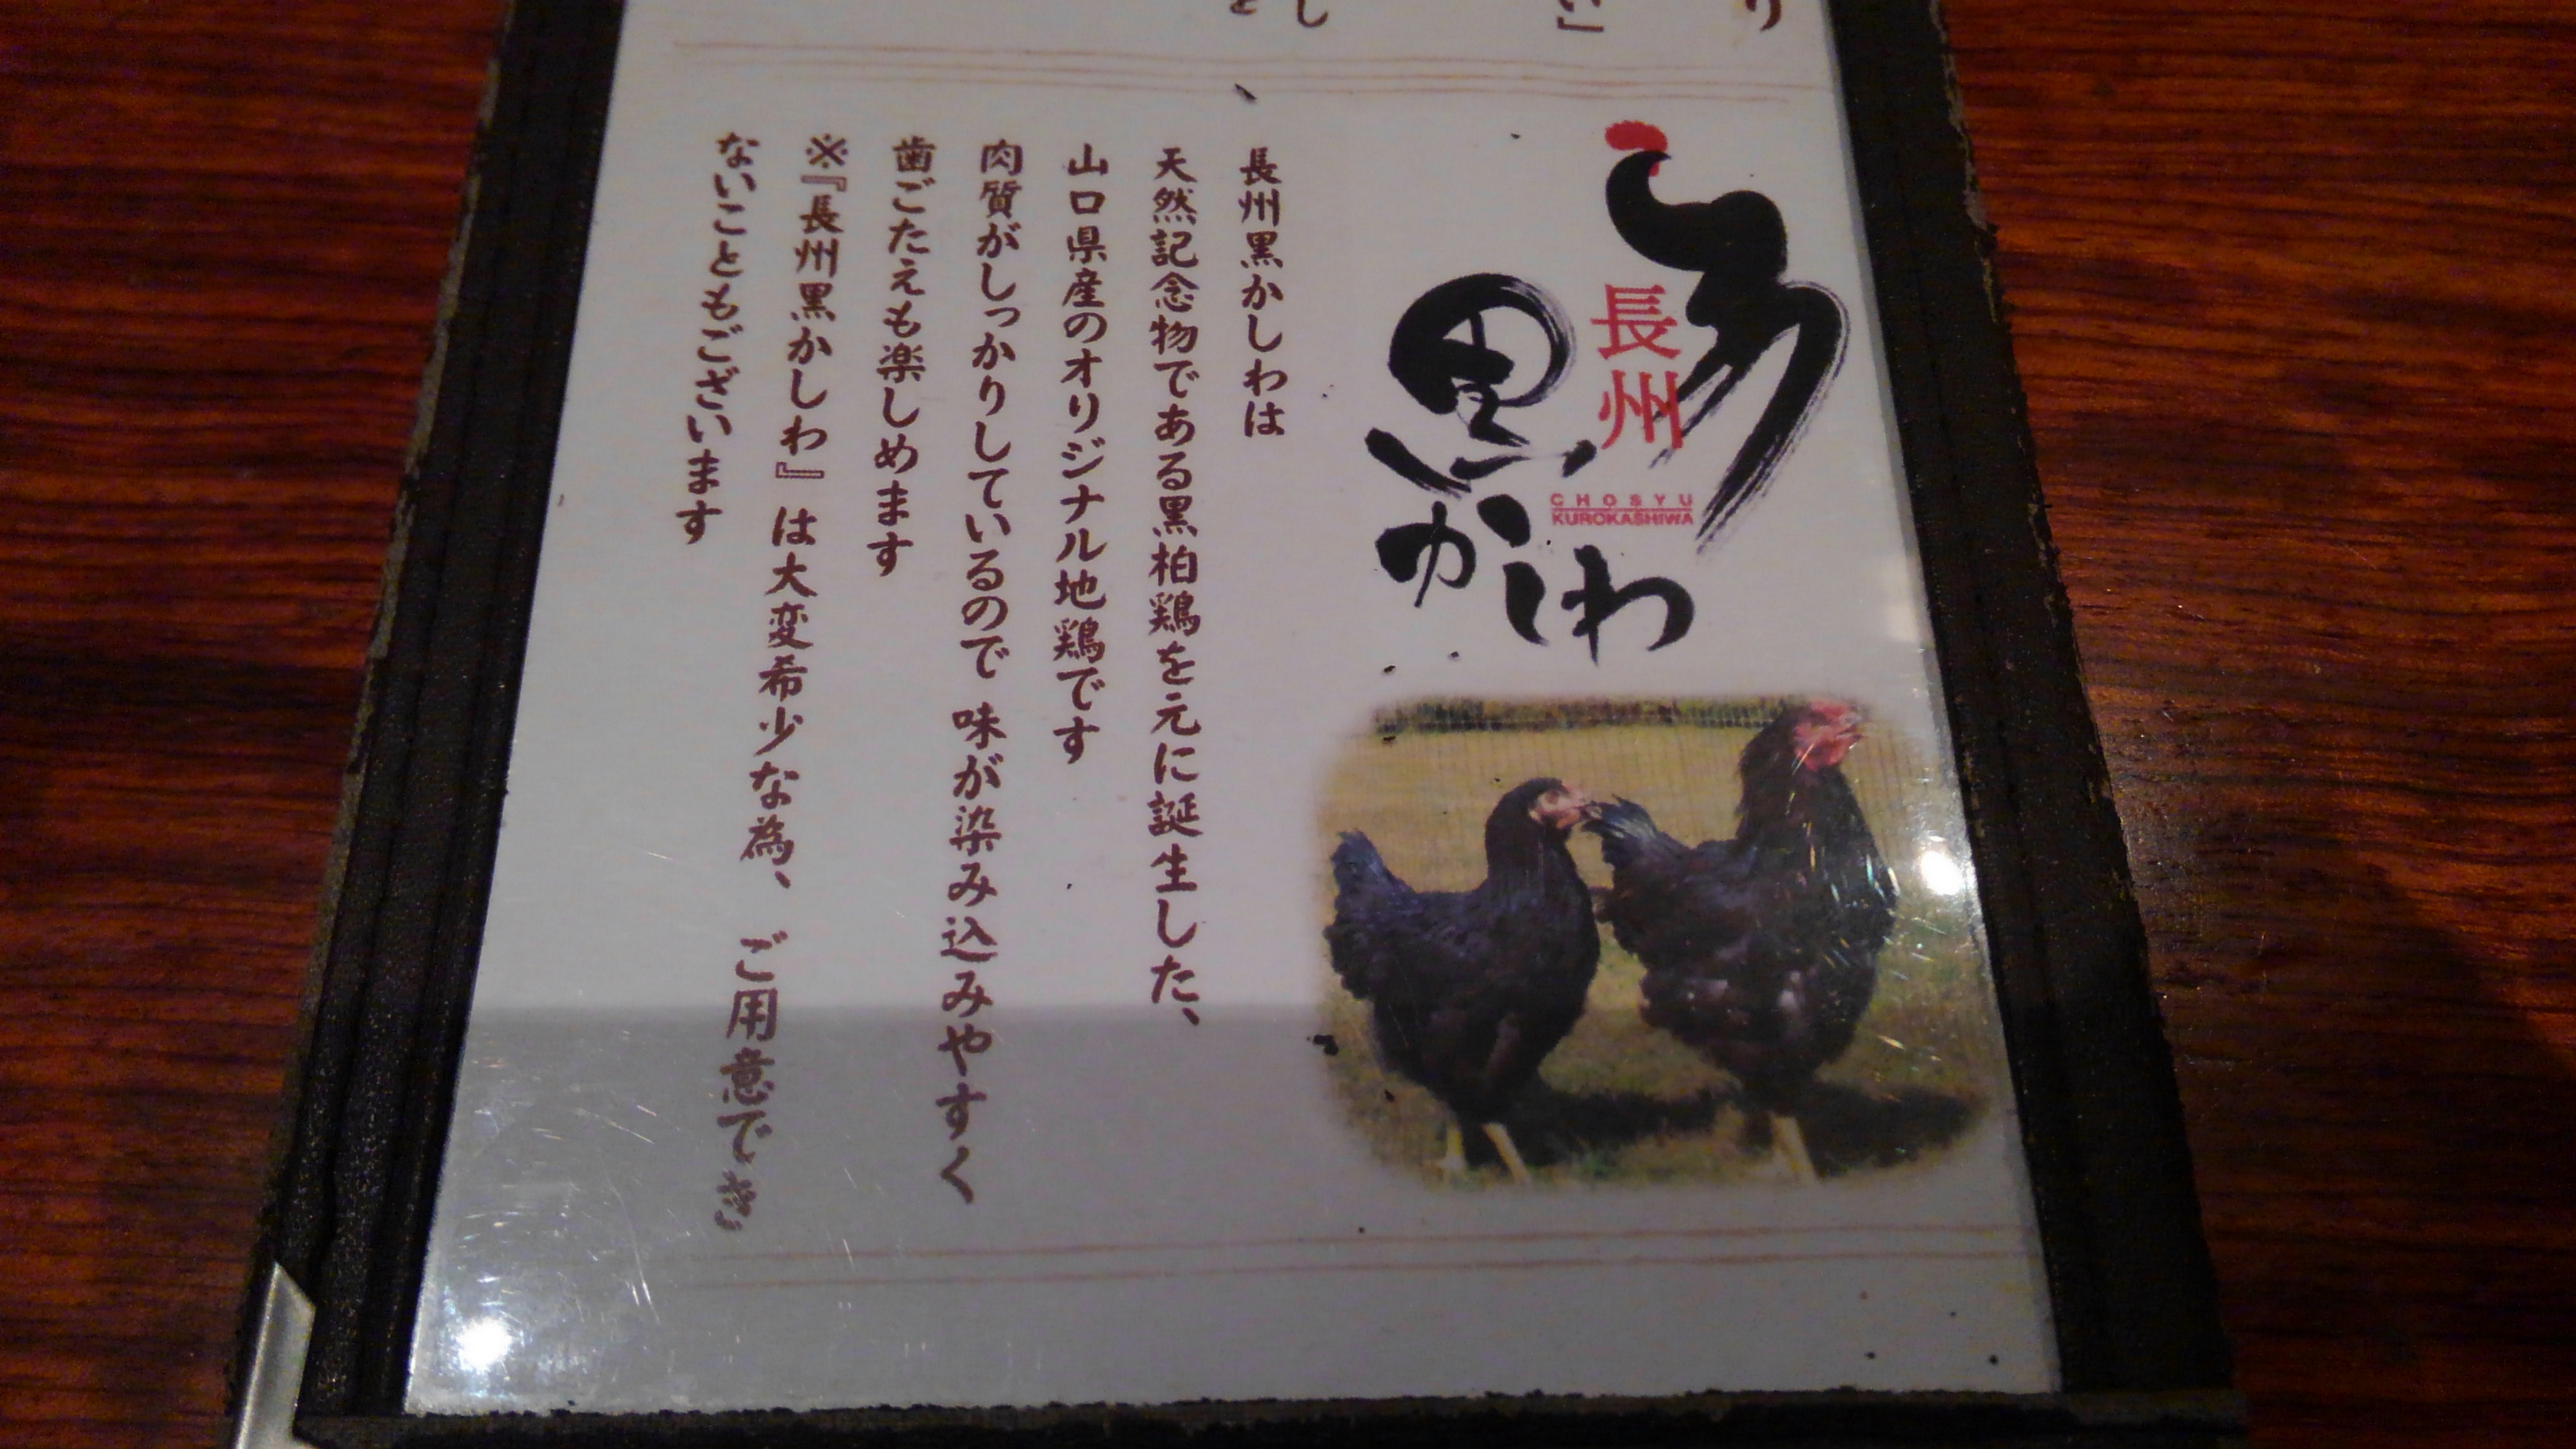 長州
黒かしわ
CHOSYU
KUROKASHIWA
長州黒かしわは
天然記念物である黒柏鶏を元に誕生した、
山口県産のオリジナル地鶏です
肉質がしっかりしているので 味が染み込みやすく
歯ごたえも楽しめます
※『長州黒かしわ』は大変希少な為、ご用意でき
ないこともございます